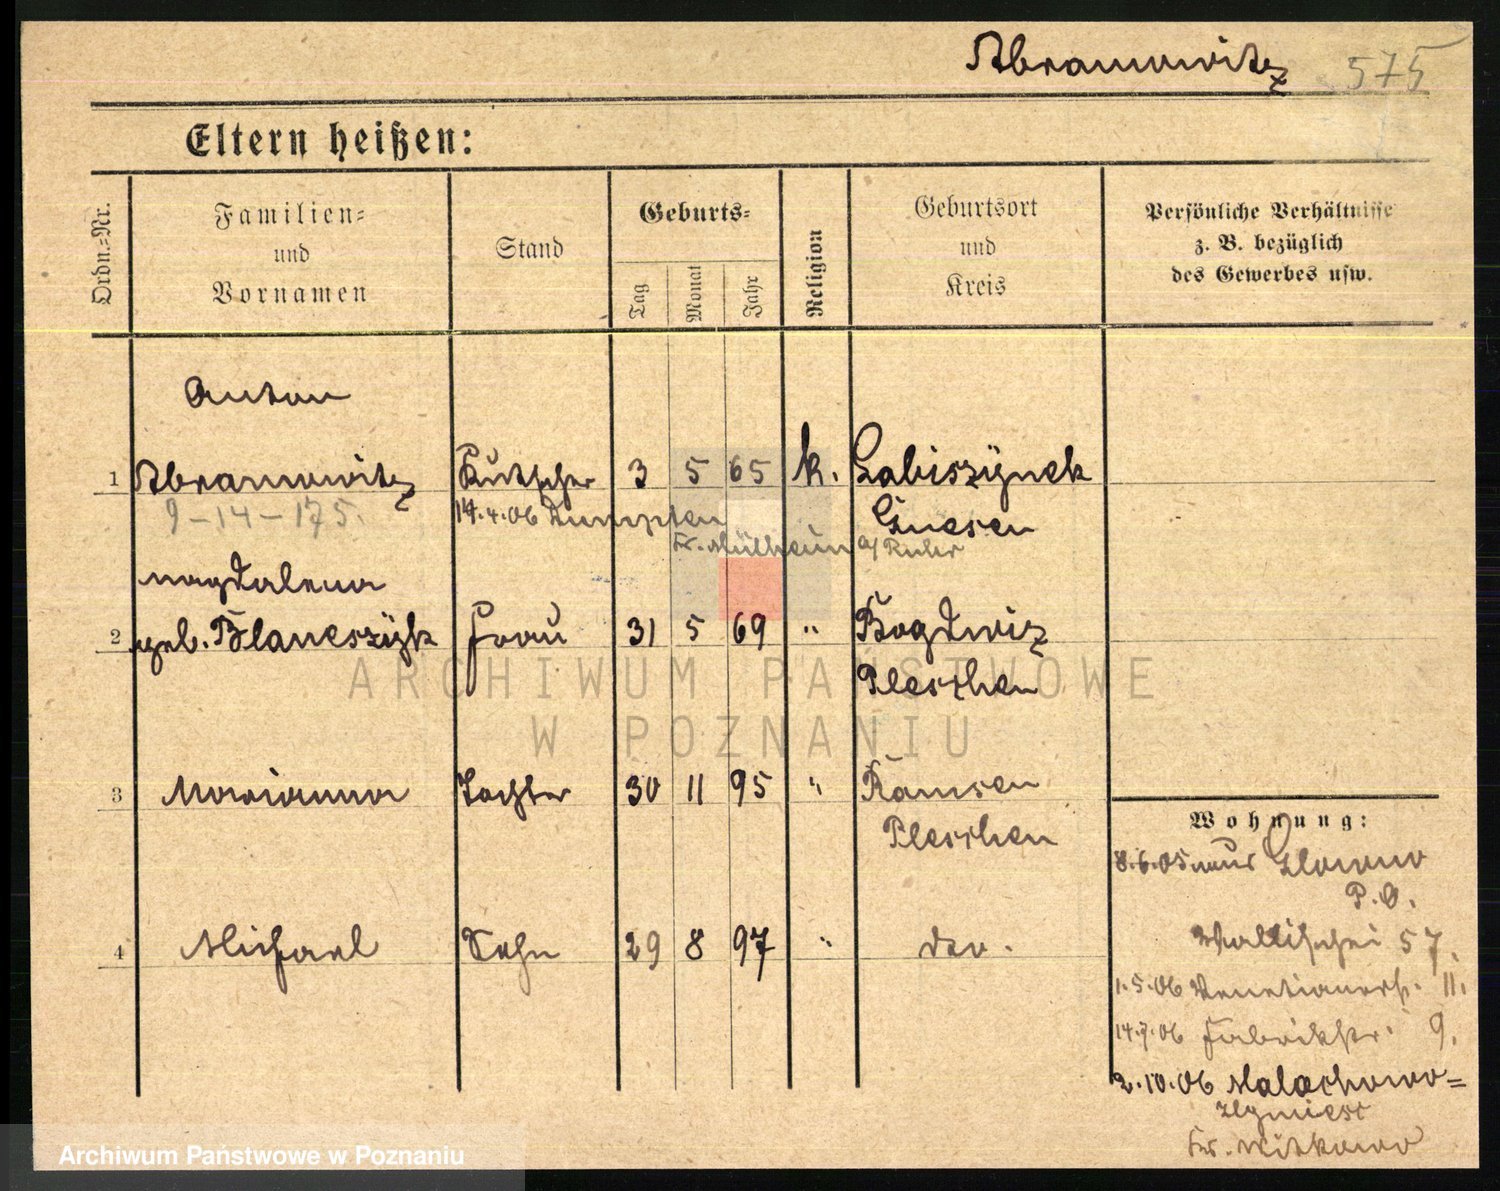 Abramowitz 575
Eltern heißen:
Ordn.=Nr.
Familien= und Vornamen
Stand
Geburts=
Tag
Monat
Jahr
Religion
Geburtsort und Kreis
Persönliche Verhältnisse
z. B. bezüglich
des Gewerbes usw.
Anton
1 Abramowitz Kutscher 3 5 65 k. Labiszynek
9-14-175. 14.4.06 Dümpten Gnesen
Kr. Mülheim a/ Ruhr
Magdalena
2 geb. Blaneszyk Frau 31 5 69 " Bogdwiz
Pleschen
3 Marianna Tochter 30 11 95 " Ramsen
Pleschen
4 Michael Sohn 29 8 97 " dto.
Wohnung:
8.6.05 aus
P.O.
Wallischei 57.
1.5.06 Venetianerstr. 11.
14.7.06 Fabrikstr. 9.
2.10.06 Malachowo=
Kr. Witkowo
ARCHIWUM PAŃSTWOWE
W POZNANIU
Archiwum Państwowe w Poznaniu